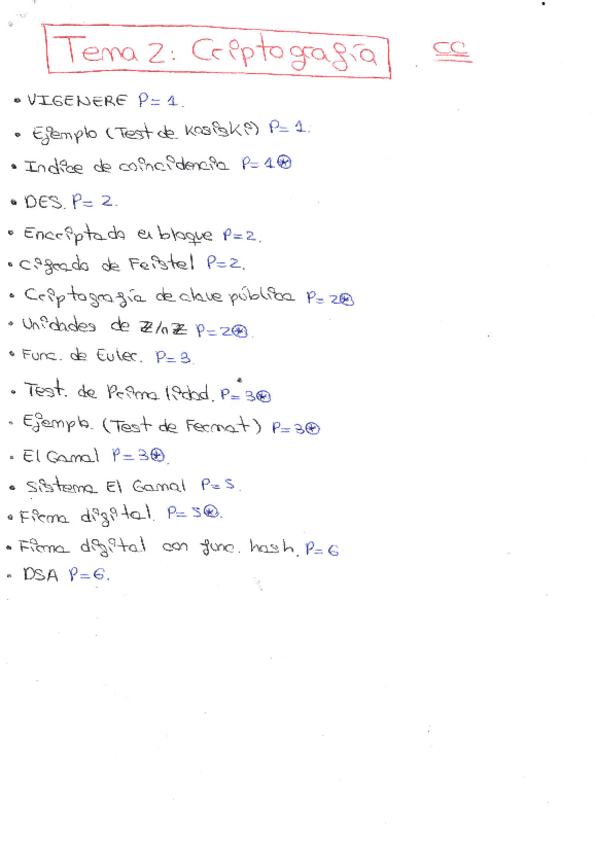 Tema 2: Criptografía CC
• VIGENERE P=1.
• Ejemplo (Test de Kasiski) P=1.
• Indice de coincidencia P=1⊛
• DES. P=2.
• Encriptado en bloque P=2.
• Cifrado de Feistel P=2.
• Criptografía de clave pública P=2⊛
• Unidades de ℤ/nℤ P=2⊛.
• Func. de Euler. P=3
• Test. de Primalidad. P=3⊛
• Ejemplo. (Test de Fermat) P=3⊛
• El Gamal P=3⊛.
• Sistema El Gamal P=5.
• Firma digital. P=5⊛.
• Firma digital con func. hash. P=6
• DSA P=6.